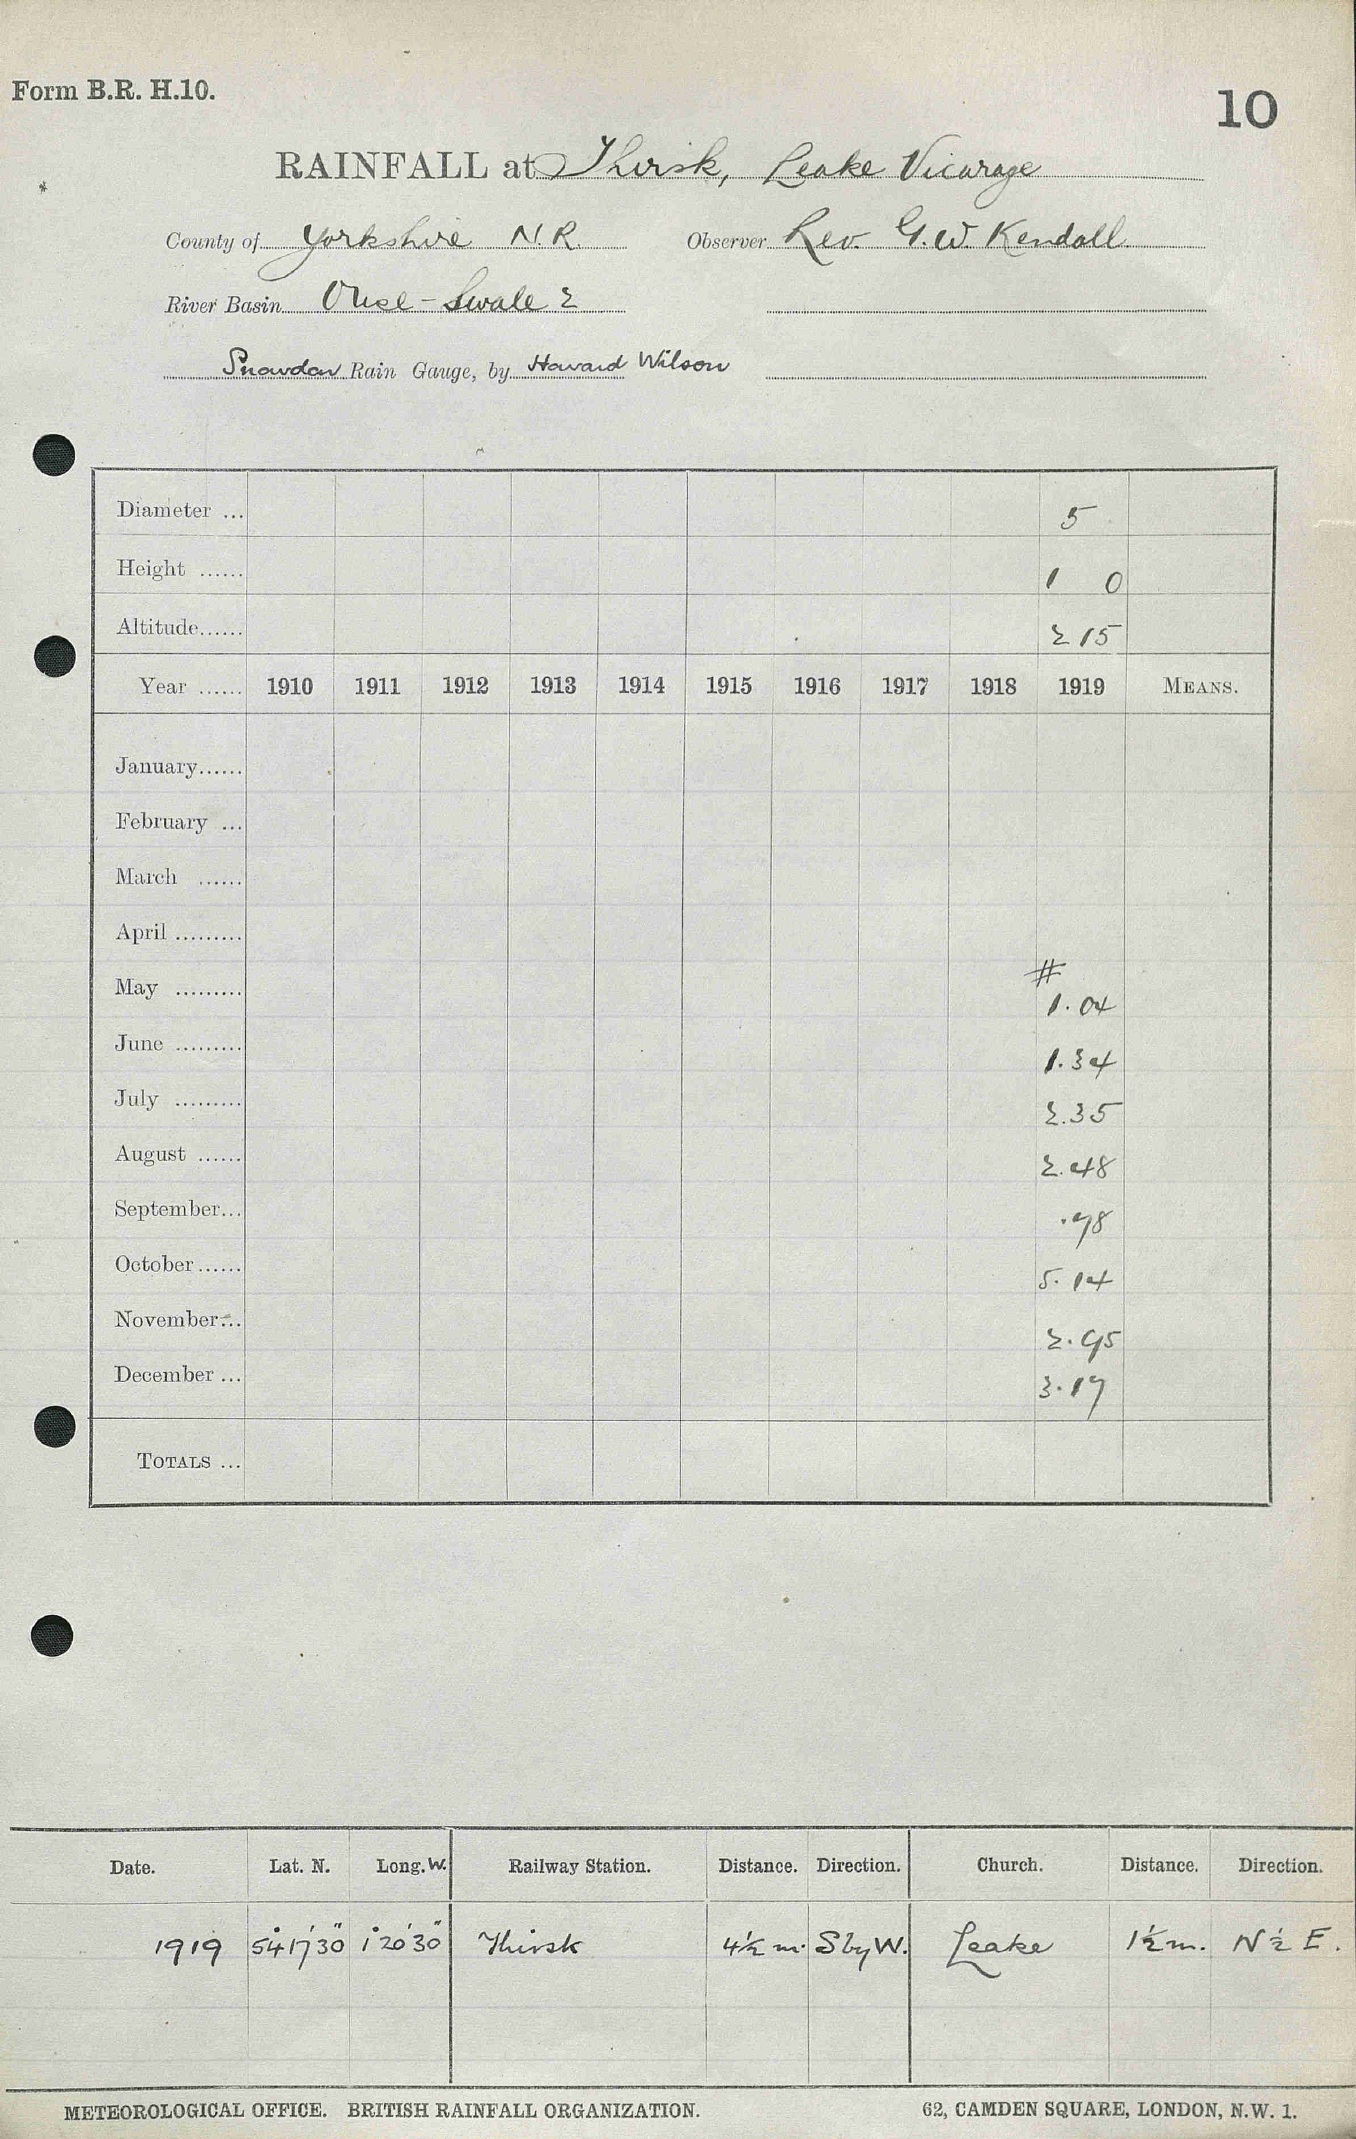 Form B.R. H.10.
10
RAINFALL at Thirsk, Leake Vicarage
County of Yorkshire N.R. Observer Rev. G.W. Kendall
River Basin Ouse - Swale 2
Snowdon Rain Gauge, by Havard Wilson
Diameter ... 5
Height ...... 1 0
Altitude...... 215
Year ...... 1910 1911 1912 1913 1914 1915 1916 1917 1918 1919 MEANS.
January......
February ...
March ......
April .........
#
May ......... 1.04
June ......... 1.34
July ......... 2.35
August ...... 2.48
September... .78
October...... 5.14
November... 2.95
December ... 3.17
TOTALS ...
Date. Lat. N. Long. W. Railway Station. Distance. Direction. Church. Distance. Direction.
1919 54°17'30" 1°20'30" Thirsk 4½ m. S by W. Leake 1½ m. N ½ E.
METEOROLOGICAL OFFICE. BRITISH RAINFALL ORGANIZATION. 62, CAMDEN SQUARE, LONDON, N.W. 1.